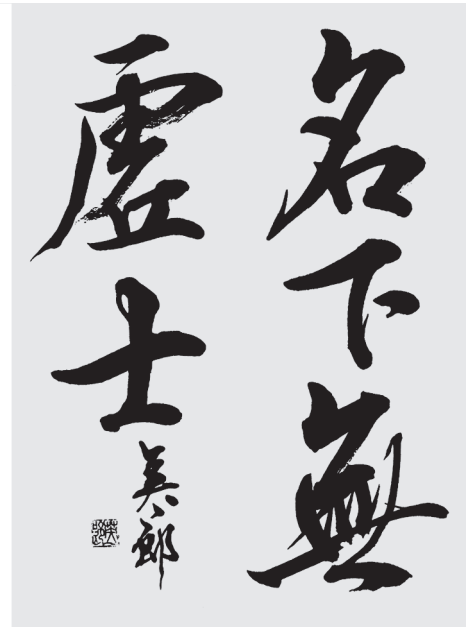 名下無
虚士
英郎